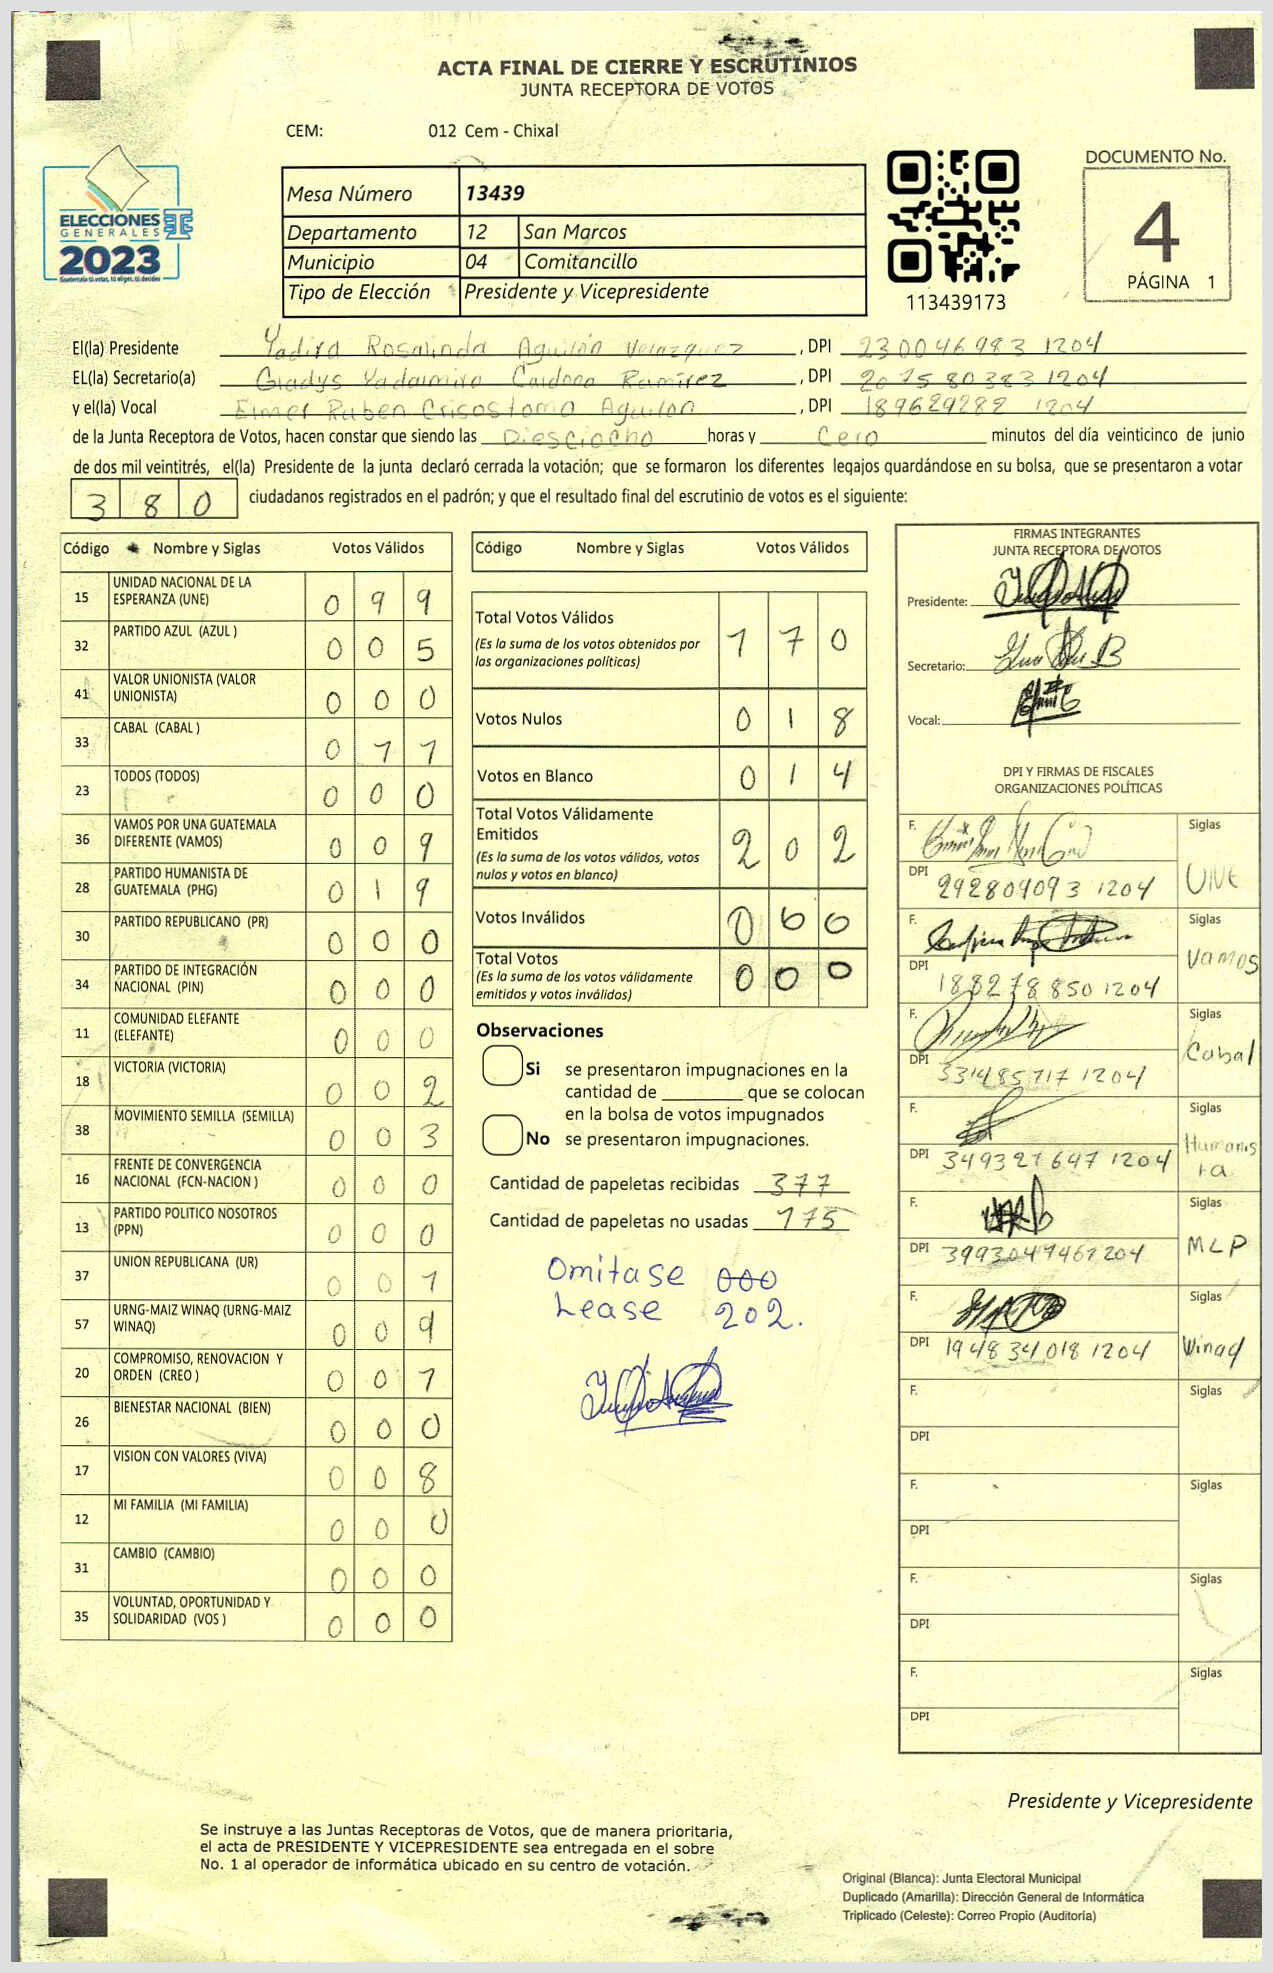 ACTA FINAL DE CIERRE Y ESCRUTINIOS
JUNTA RECEPTORA DE VOTOS
CEM: 012 Cem - Chixal
ELECCIONES
GENERALES
2023
Guatemala tú votas, tú eliges, tú decides
Mesa Número 13439
Departamento 12 San Marcos
Municipio 04 Comitancillo
Tipo de Elección Presidente y Vicepresidente
113439173
DOCUMENTO No.
4
PÁGINA 1
El(la) Presidente Yadira Rosalinda Aguilón Velazquez, DPI 230046983 1204
EL(la) Secretario(a) Gladys Yadalmira Cardona Ramírez, DPI 207580383 1204
y el(la) Vocal Elmer Ruben Crisostomo Aguilon, DPI 189629282 1204
de la Junta Receptora de Votos, hacen constar que siendo las Diesciocho horas y Cero minutos del día veinticinco de junio
de dos mil veintitrés, el(la) Presidente de la junta declaró cerrada la votación; que se formaron los diferentes legajos guardándose en su bolsa, que se presentaron a votar
3 8 0 ciudadanos registrados en el padrón; y que el resultado final del escrutinio de votos es el siguiente:
Código Nombre y Siglas Votos Válidos
15 UNIDAD NACIONAL DE LA ESPERANZA (UNE) 0 9 9
32 PARTIDO AZUL (AZUL ) 0 0 5
41 VALOR UNIONISTA (VALOR UNIONISTA) 0 0 0
33 CABAL (CABAL ) 0 1 1
23 TODOS (TODOS) 0 0 0
36 VAMOS POR UNA GUATEMALA DIFERENTE (VAMOS) 0 0 9
28 PARTIDO HUMANISTA DE GUATEMALA (PHG) 0 1 9
30 PARTIDO REPUBLICANO (PR) 0 0 0
34 PARTIDO DE INTEGRACIÓN NACIONAL (PIN) 0 0 0
11 COMUNIDAD ELEFANTE (ELEFANTE) 0 0 0
18 VICTORIA (VICTORIA) 0 0 2
38 MOVIMIENTO SEMILLA (SEMILLA) 0 0 3
16 FRENTE DE CONVERGENCIA NACIONAL (FCN-NACION ) 0 0 0
13 PARTIDO POLITICO NOSOTROS (PPN) 0 0 0
37 UNION REPUBLICANA (UR) 0 0 1
57 URNG-MAIZ WINAQ (URNG-MAIZ WINAQ) 0 0 9
20 COMPROMISO, RENOVACION Y ORDEN (CREO ) 0 0 1
26 BIENESTAR NACIONAL (BIEN) 0 0 0
17 VISION CON VALORES (VIVA) 0 0 8
12 MI FAMILIA (MI FAMILIA) 0 0 0
31 CAMBIO (CAMBIO) 0 0 0
35 VOLUNTAD, OPORTUNIDAD Y SOLIDARIDAD (VOS ) 0 0 0
Código Nombre y Siglas Votos Válidos
Total Votos Válidos 1 7 0
(Es la suma de los votos obtenidos por
las organizaciones políticas)
Votos Nulos 0 1 8
Votos en Blanco 0 1 4
Total Votos Válidamente
Emitidos 2 0 2
(Es la suma de los votos válidos, votos
nulos y votos en blanco)
Votos Inválidos 0 0 0
Total Votos 0 0 0
(Es la suma de los votos válidamente
emitidos y votos inválidos)
Observaciones
Si se presentaron impugnaciones en la
cantidad de ________ que se colocan
en la bolsa de votos impugnados
No se presentaron impugnaciones.
Cantidad de papeletas recibidas 377
Cantidad de papeletas no usadas 175
Omitase 000
Lease 202.
FIRMAS INTEGRANTES
JUNTA RECEPTORA DE VOTOS
Presidente:
Secretario:
Vocal:
DPI Y FIRMAS DE FISCALES
ORGANIZACIONES POLÍTICAS
F. Siglas
DPI 292809093 1204 UNE
F. Siglas
DPI 188278850 1204 Vamos
F. Siglas
DPI 331485717 1204 Cabal
F. Siglas
DPI 349321647 1204 Humanista
F. Siglas
DPI 3993047461204 MLP
F. Siglas
DPI 194834018 1204 Winaq
F. Siglas
DPI
F. Siglas
DPI
F. Siglas
DPI
F. Siglas
DPI
Presidente y Vicepresidente
Se instruye a las Juntas Receptoras de Votos, que de manera prioritaria,
el acta de PRESIDENTE Y VICEPRESIDENTE sea entregada en el sobre
No. 1 al operador de informática ubicado en su centro de votación.
Original (Blanca): Junta Electoral Municipal
Duplicado (Amarilla): Dirección General de Informática
Triplicado (Celeste): Correo Propio (Auditoría)